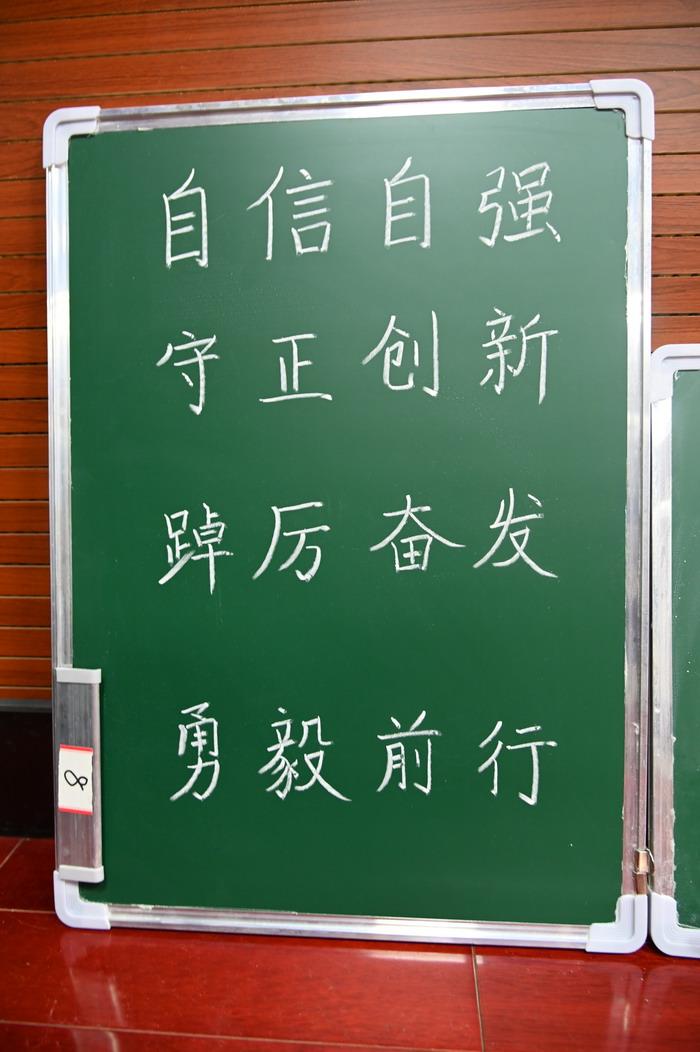 自信自强
守正创新
踔厉奋发
勇毅前行
8